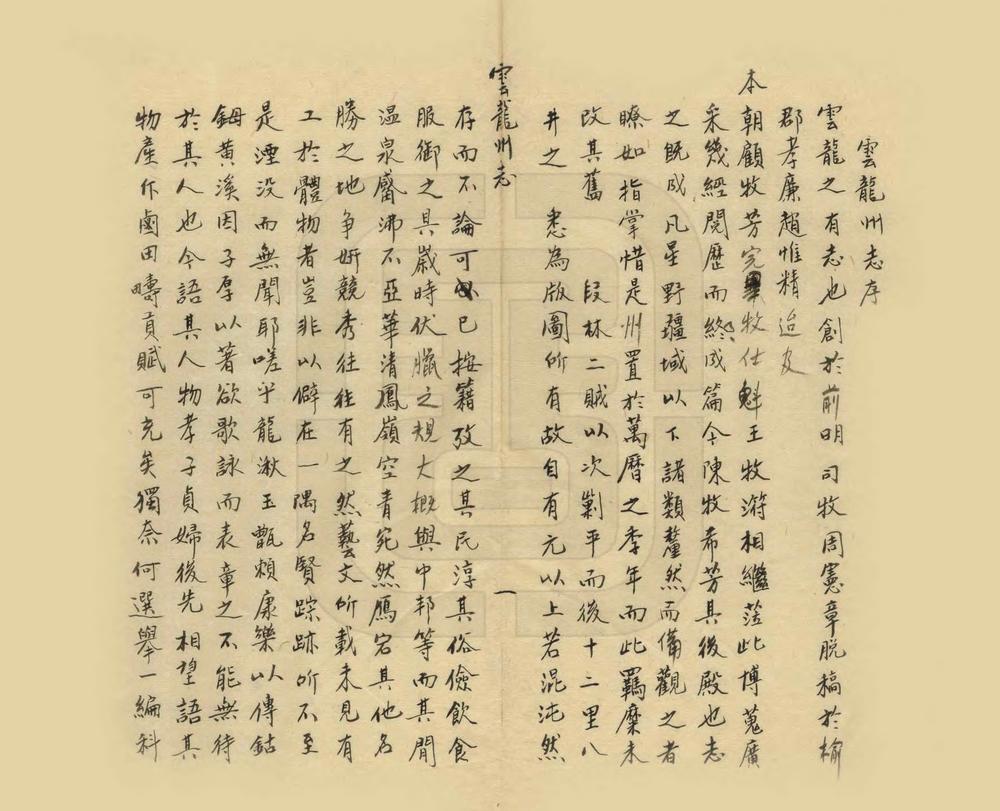 雲龍州志序
雲龍之有志也創於前明司牧周憲章脫稿於榆
郡孝廉趙惟精迨及
本朝顧牧芳完牧仕魁王牧㳺相繼蒞此博蒐廣
采幾經閱歷而終成篇今陳牧希芳其後殿也志
之既成凡星野疆域以下諸類釐然而備觀之者
瞭如指掌惜是州置於萬曆之季年而此羈縻未
改其舊 段林二賊以次剿平而後十二里八
井之 悉為版圖所有故自有元以上若混沌然
雲龍州志
一
存而不論可已按籍攷之其民淳其俗儉飲食
服御之具歲時伏臘之規大概與中邦等而其間
温泉觱沸不亞華清鳳嶺空青宛然鴈宕其他名
勝之地争妍競秀往往有之然藝文所載未見有
工於體物者豈非以僻在一隅名賢踪跡所不至
是湮没而無聞耶嗟乎龍湫玉甑賴康樂以傳鈷
鉧黃溪因子厚以著欲歌詠而表章之不能無待
於其人也今語其人物孝子貞婦後先相望語其
物產斥鹵田疇貢賦可充矣獨奈何選舉一編科